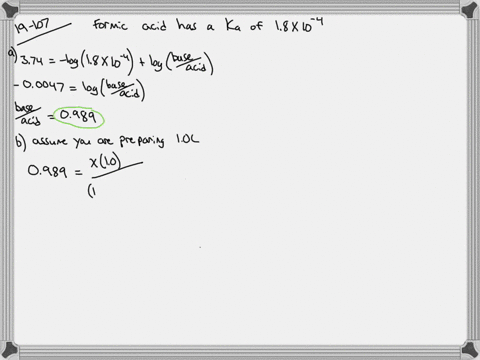 19-107 formic acid has a Ka of 1.8 X 10^-4
a) 3.74 = -log(1.8 X 10^-4) + log(base/acid)
-0.0047 = log(base/acid)
base/acid = 0.989
b) assume you are preparing 1.0L
0.989 = x(1.0)/(1